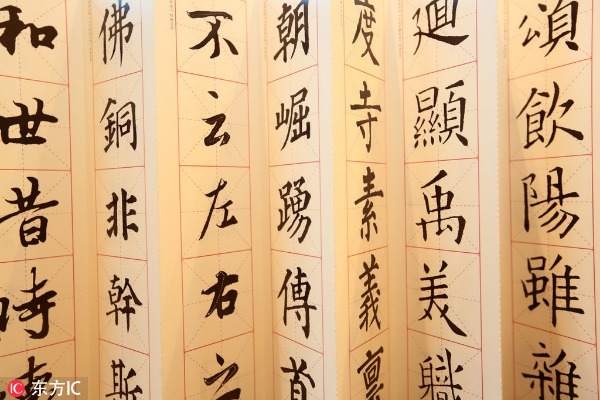 頌飲陽雖雜
廻顯禹美職
度寺素義稟
朝崛踴傅
不云左右之
佛銅非幹斯
和世昔時
IC 东方IC